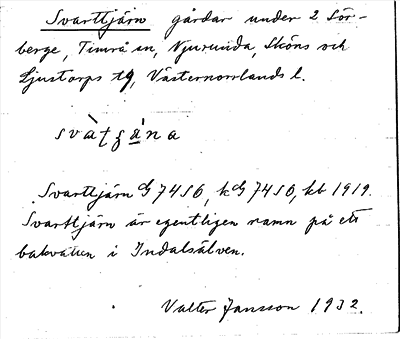 Svarttjärn gårdar under 2 Sör-
berge, Timrå sn, Njurunda, Sköns och
Ljustorps tg, Västernorrlands l.
Svarttjärn G 7456, kG 7456, kb 1919.
Svarttjärn är egentligen namn på ett
bakvatten i Indalsälven.
Valter Jansson 1932.